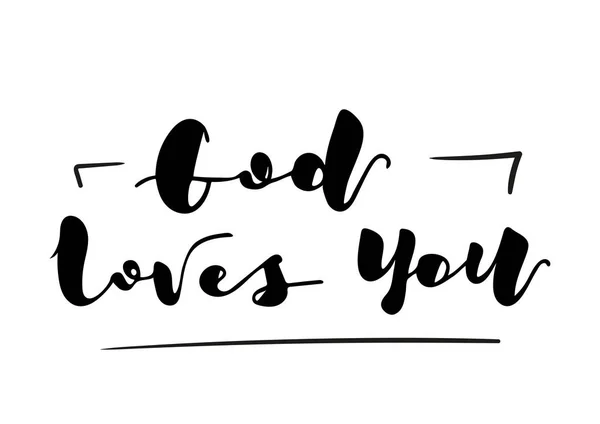 God
loves you